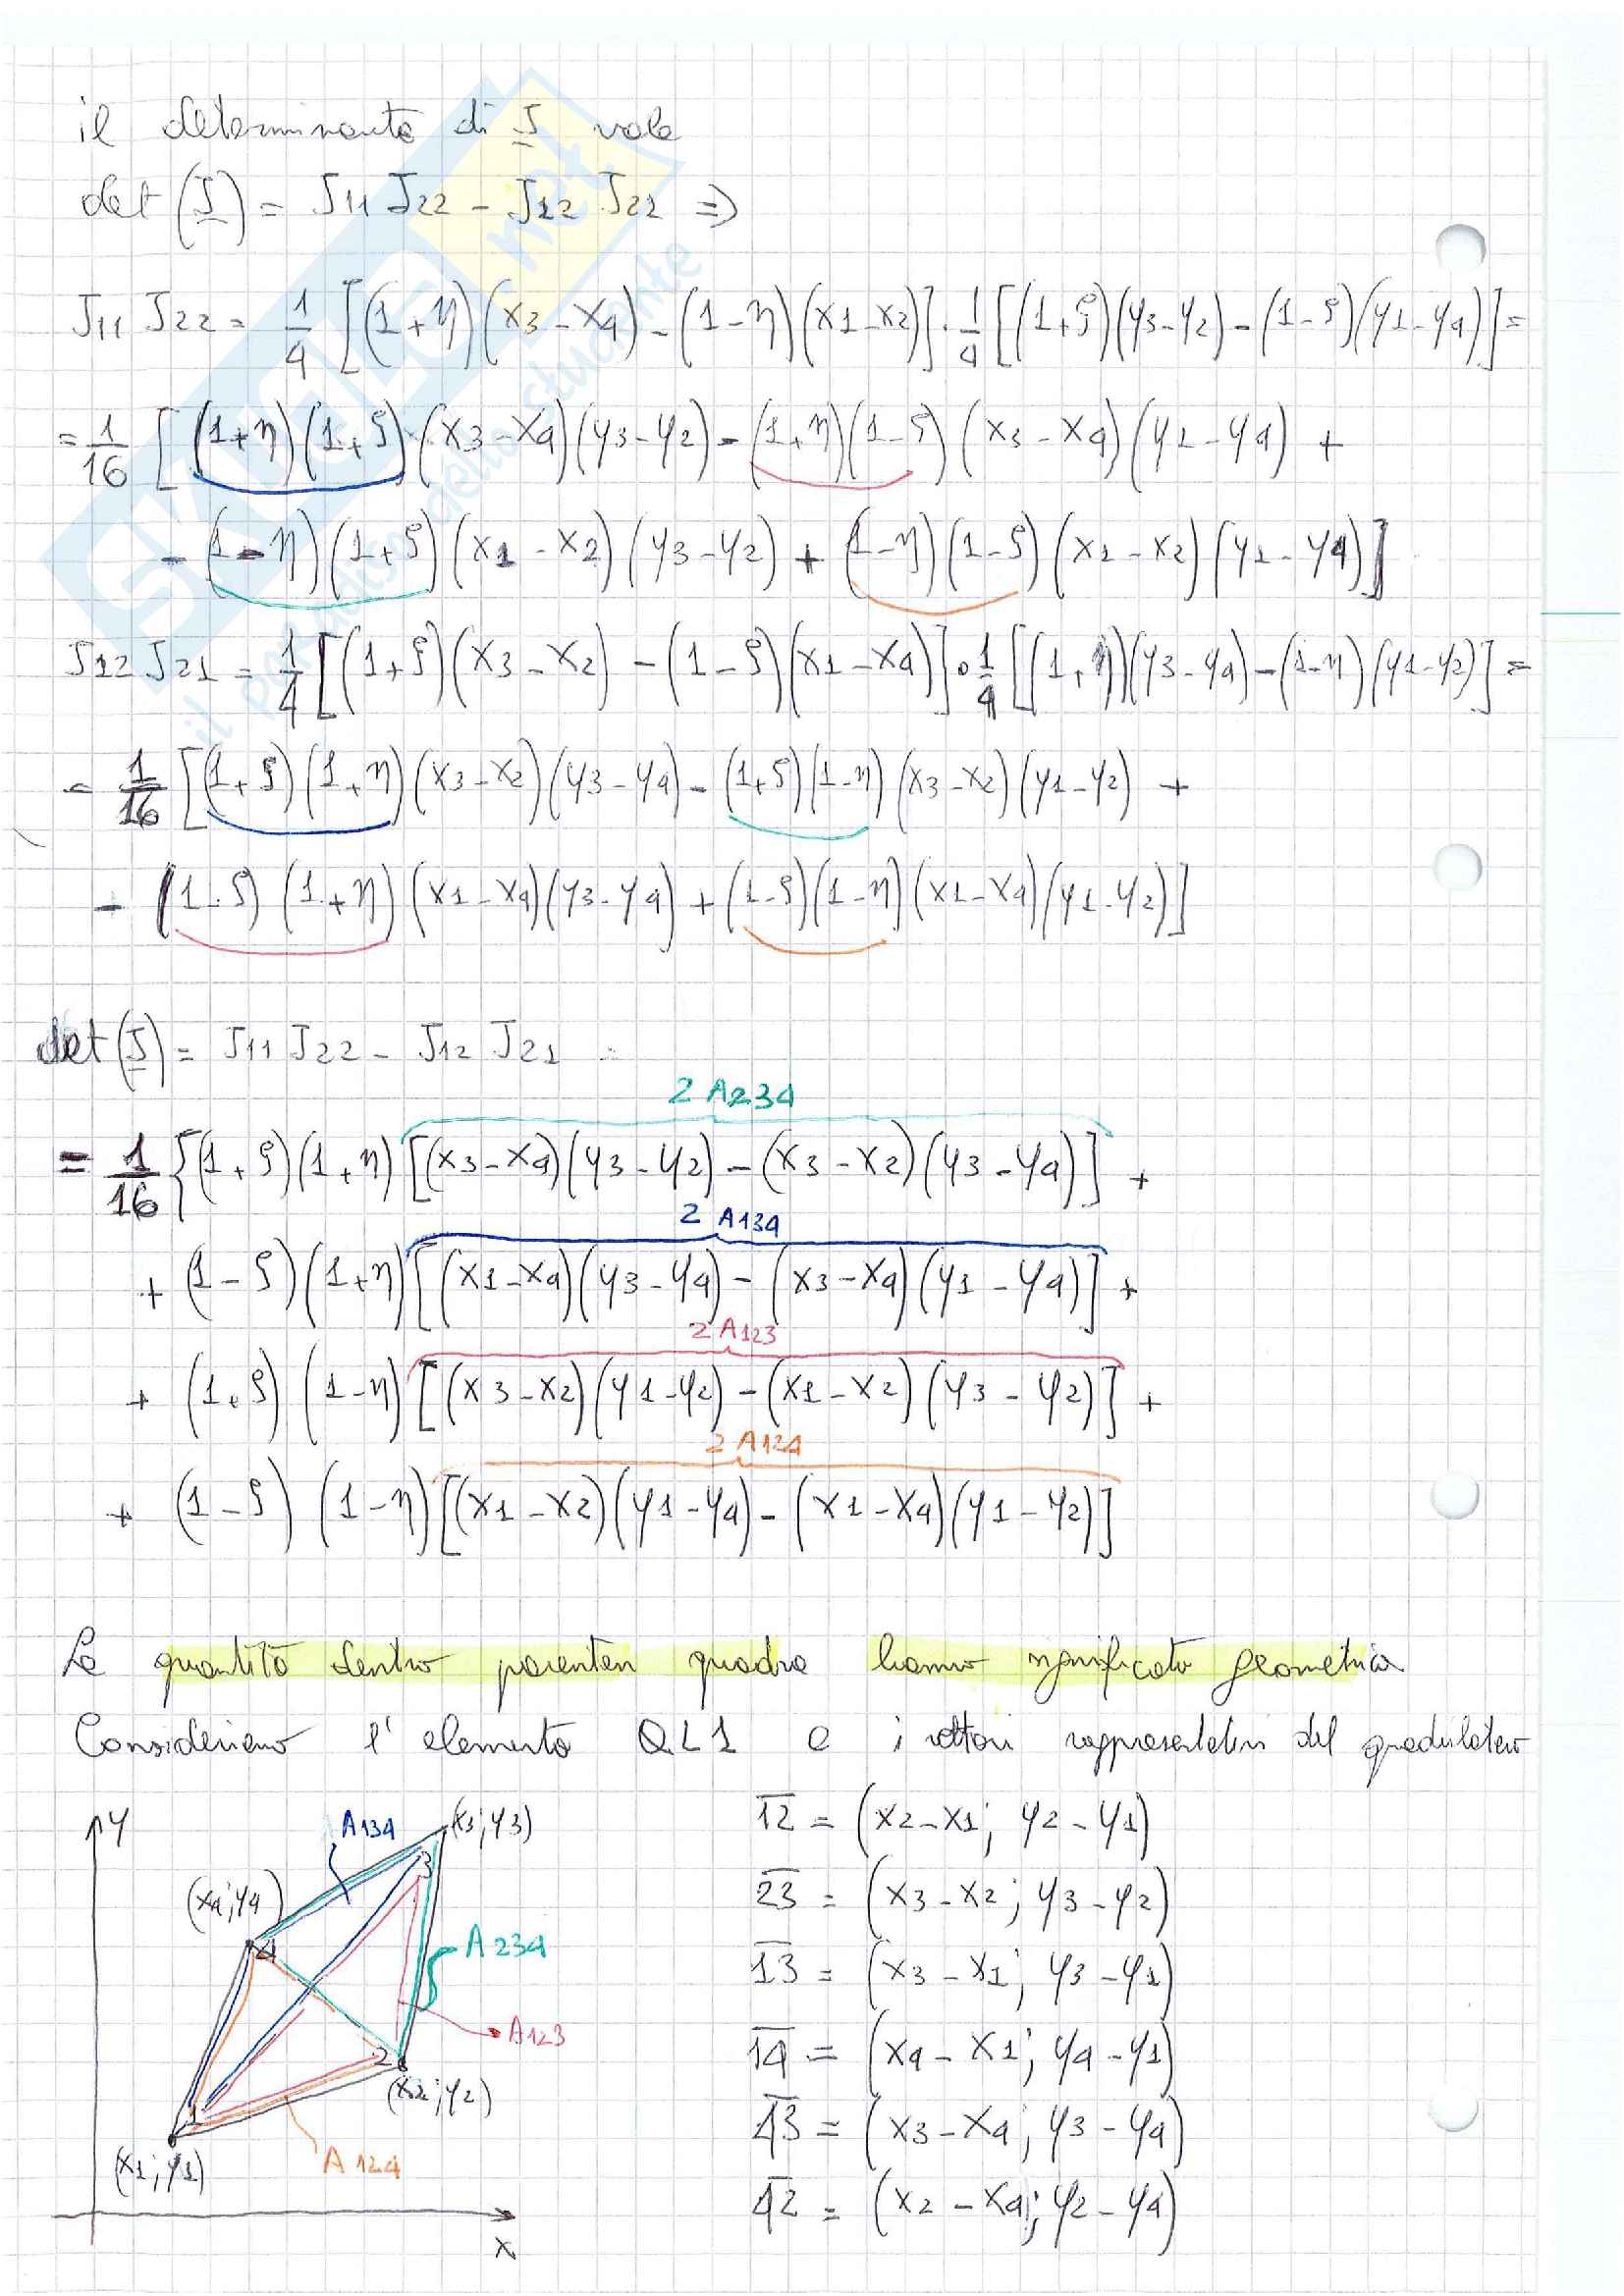 il determinante di J vale
det (J) = J11 J22 - J12 J21 =>
J11 J22 = 1/4 [(1+η)(x3-x4) - (1-η)(x1-x2)] · 1/4 [(1+ξ)(y3-y2) - (1-ξ)(y1-y4)] =
= 1/16 [(1+η)(1+ξ)·(x3-x4)(y3-y2) - (1+η)(1-ξ)(x3-x4)(y1-y4) +
- (1-η)(1+ξ)(x1-x2)(y3-y2) + (1-η)(1-ξ)(x1-x2)(y1-y4)]
J12 J21 = 1/4 [(1+ξ)(x3-x2) - (1-ξ)(x1-x4)] · 1/4 [(1+η)(y3-y4) - (1-η)(y1-y2)] =
= 1/16 [(1+ξ)(1+η)(x3-x2)(y3-y4) - (1+ξ)(1-η)(x3-x2)(y1-y2) +
- (1-ξ)(1+η)(x1-x4)(y3-y4) + (1-ξ)(1-η)(x1-x4)(y1-y2)]
det (J) = J11 J22 - J12 J21 =
2 A234
= 1/16 {(1+ξ)(1+η)[(x3-x4)(y3-y2) - (x3-x2)(y3-y4)] +
2 A134
+ (1-ξ)(1+η)[(x1-x4)(y3-y4) - (x3-x4)(y1-y4)] +
2 A123
+ (1+ξ)(1-η)[(x3-x2)(y1-y2) - (x1-x2)(y3-y2)] +
2 A124
+ (1-ξ)(1-η)[(x1-x2)(y1-y4) - (x1-x4)(y1-y2)]
Le quantità dentro parentesi quadra hanno significato geometrico
Consideriamo l' elemento QL1 e i vettori rappresentativi del quadrilatero
y
A134
(x3; y3)
(x4; y4)
3
4
A234
A123
2
(x2; y2)
1
(x1; y1)
A124
x
12 = (x2-x1; y2-y1)
23 = (x3-x2; y3-y2)
13 = (x3-x1; y3-y1)
14 = (x4-x1; y4-y1)
43 = (x3-x4; y3-y4)
42 = (x2-x4; y2-y4)
SKUOLA.net
il paradiso dello studente